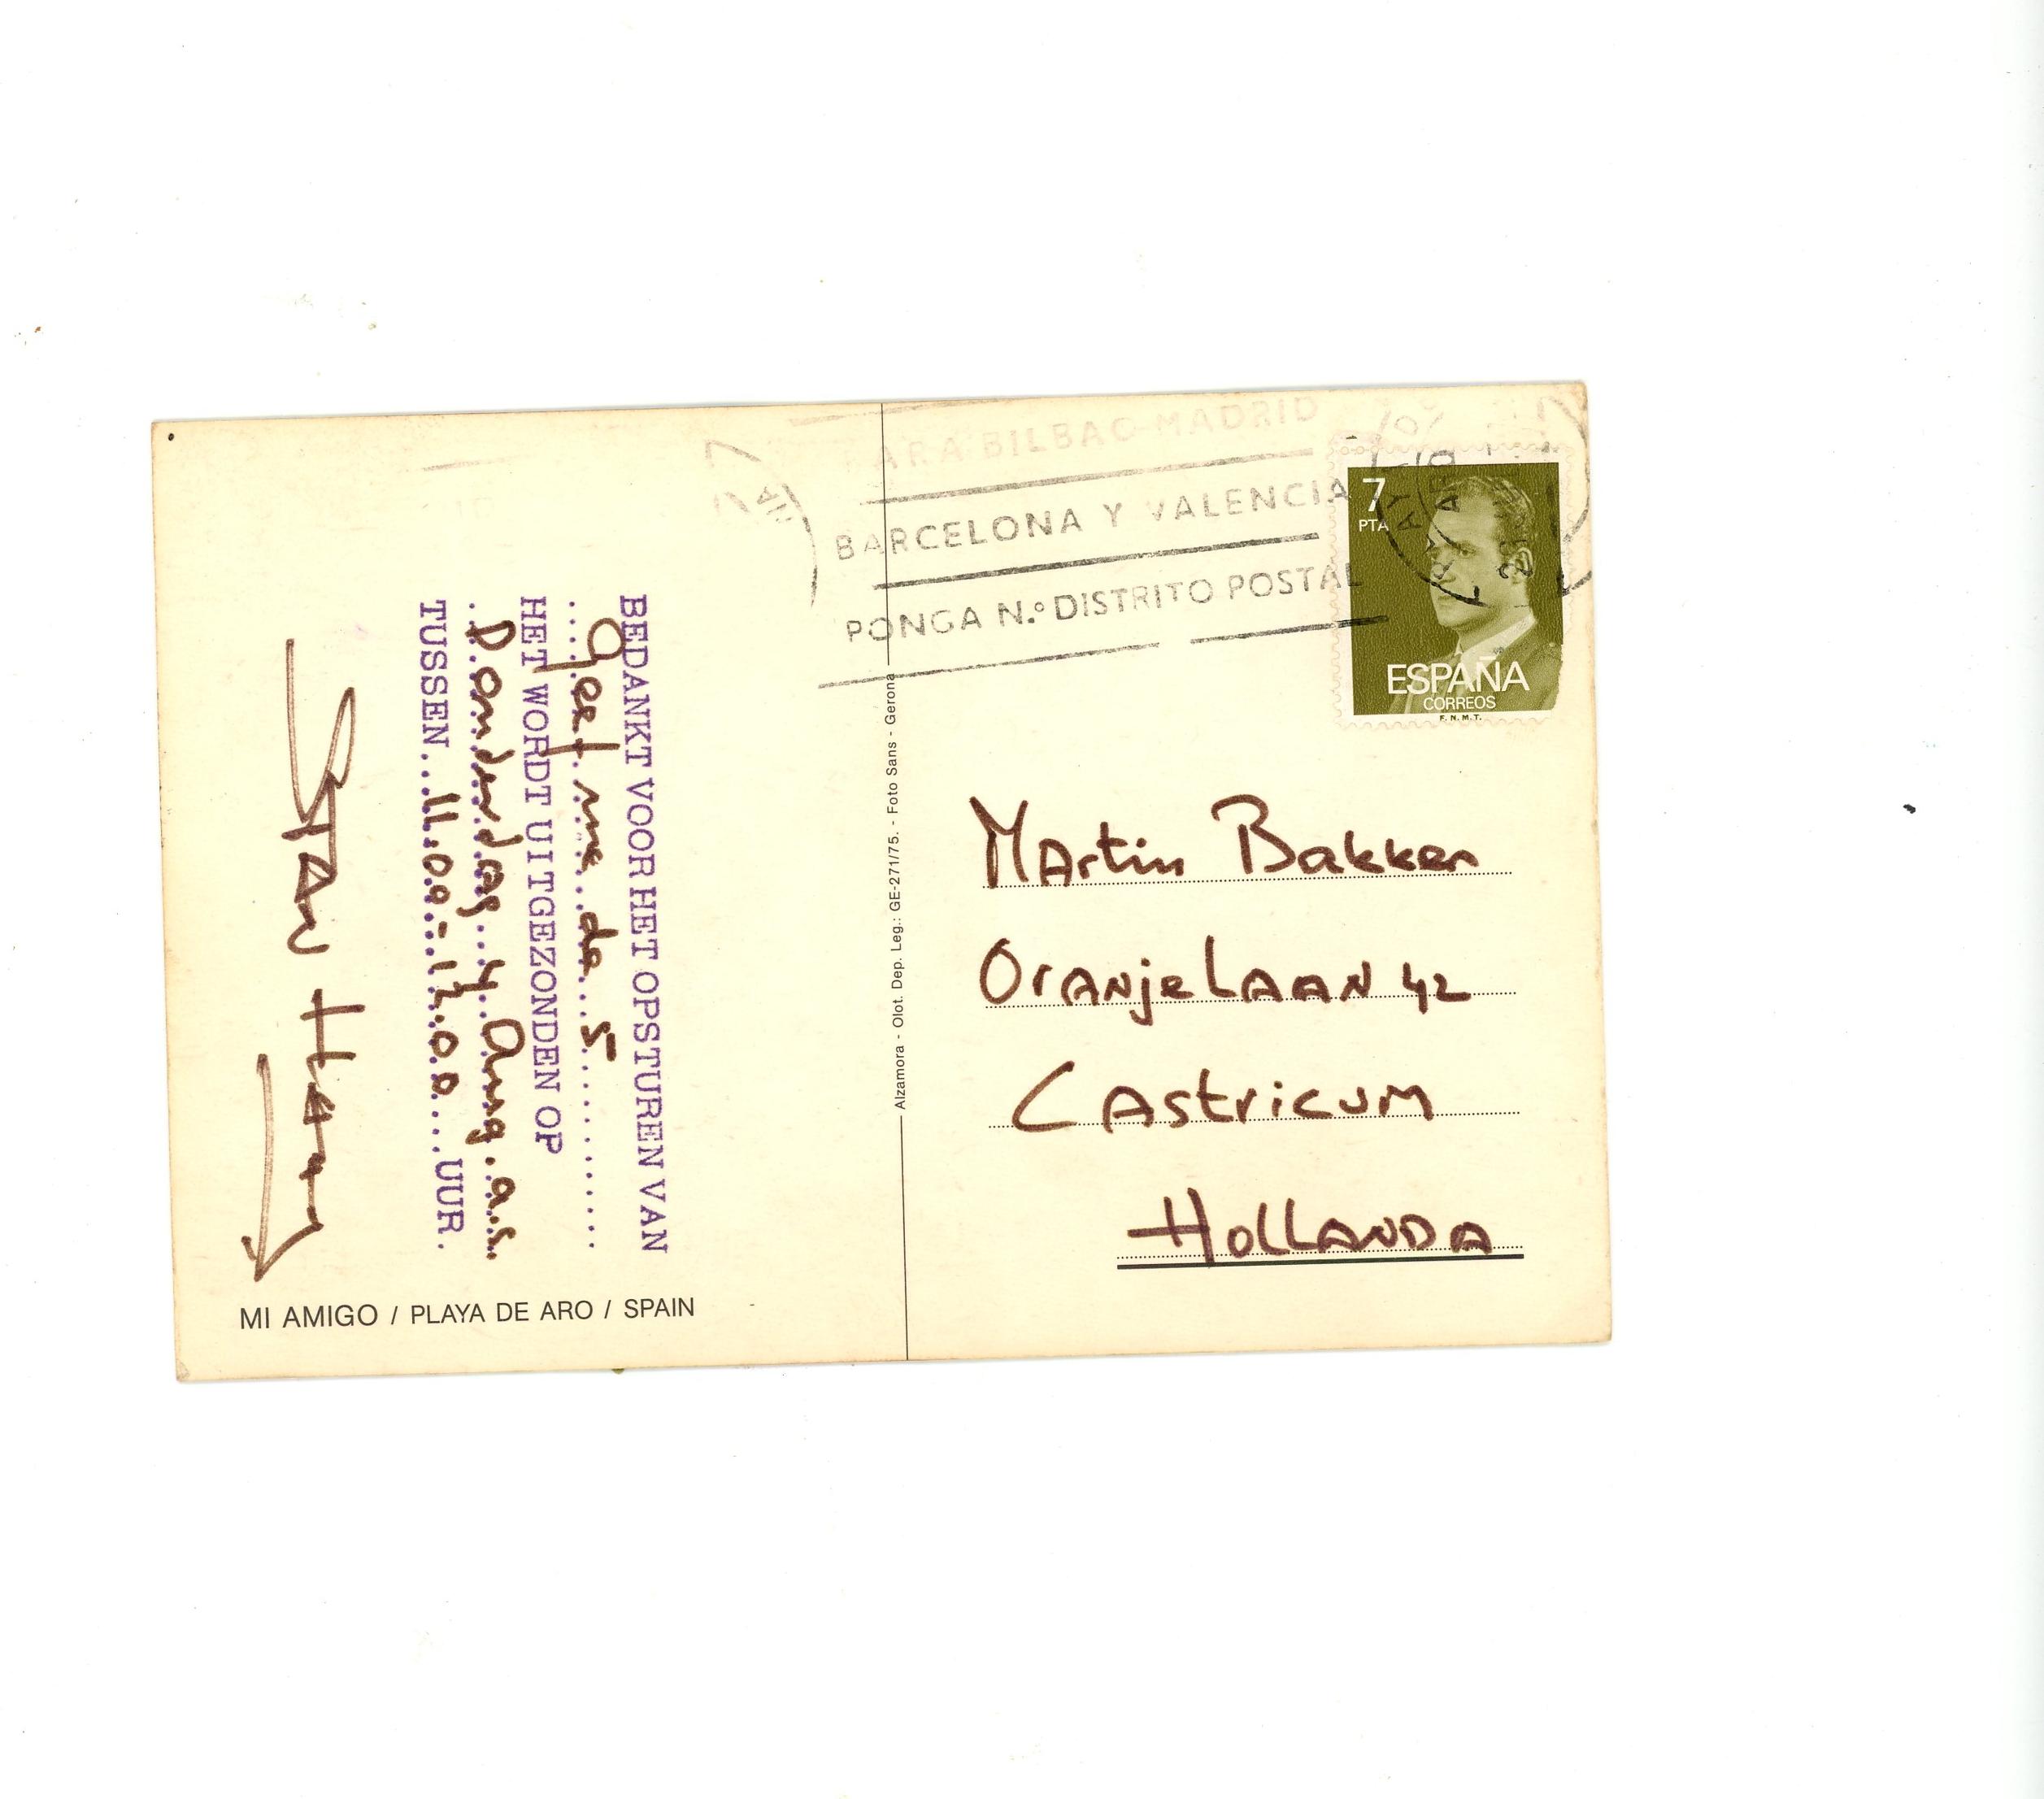 PARA BILBAO-MADRID
BARCELONA Y VALENCIA
PONGA N.º DISTRITO POSTAL
7
PTA
ESPAÑA
CORREOS
F.N.M.T.
BEDANKT VOOR HET OPSTUREN VAN
Geef me de 5
HET WORDT UITGEZONDEN OP
Donderdag 4 Aug. a.s.
TUSSEN 11.00-12.00 UUR.
Stan Haag
MI AMIGO / PLAYA DE ARO / SPAIN
Alzamora - Olot. Dep. Leg.: GE-271/75. - Foto Sans - Gerona
Martin Bakker
Oranjelaan 42
Castricum
Hollanda